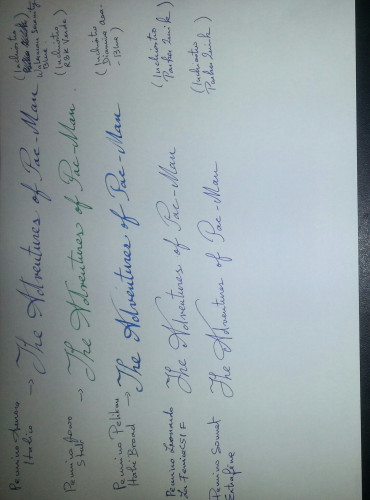 Pennino
Italic → The Adventures of Pac-Man (Inchiostro
Waterman Serenity
Blue)
Pennino
Stub → The Adventures of Pac-Man. (Inchiostro
Verde)
Pennino Pelikan
Broad → The Adventures of Pac-Man (Inchiostro
Diamine
-Blue)
Pennino Leonardo
The Adventures of Pac-Man (Inchiostro
Parker Quink)
Pennino
Extrafine The Adventures of Pac-Man (Inchiostro
Parker Quink)